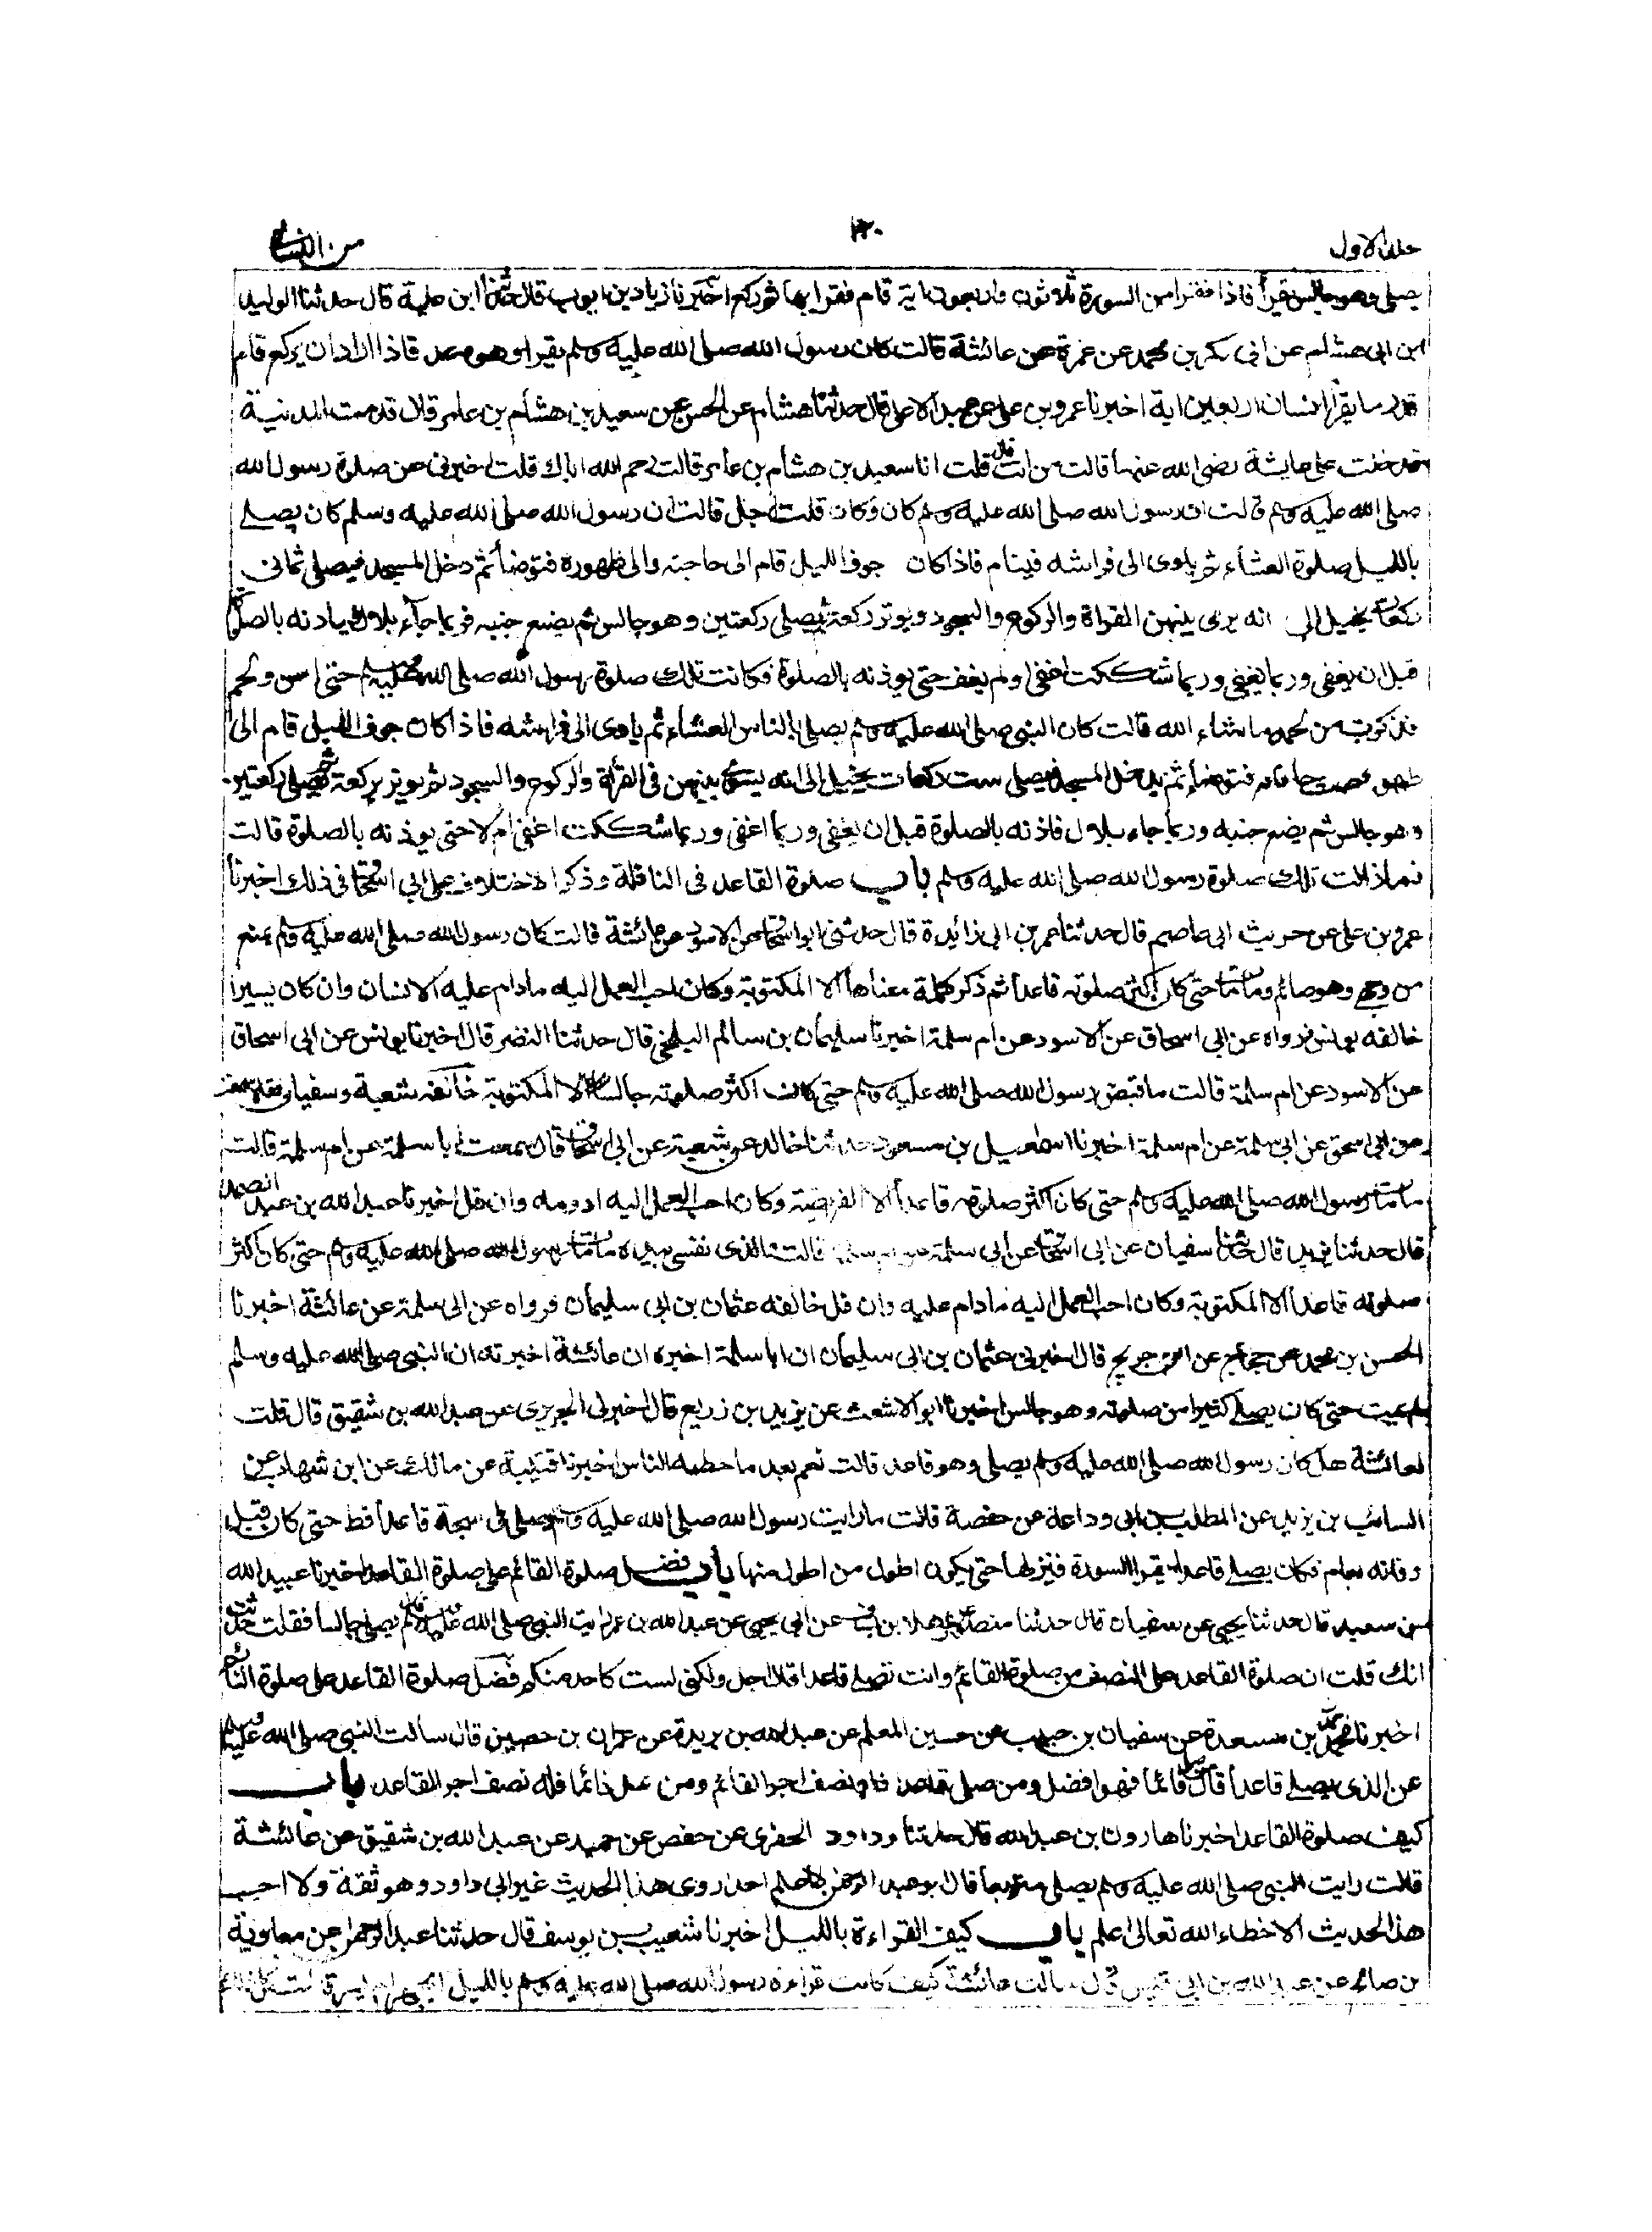 جلد الاول ١٢٠ من النسائی
يصلى وهو جالس يقرأ فاذا فقرا من السورة ثلاثون او اربعون اية قام فقرا بها ثم ركع اخبرنا زياد بن ايوب قال حدثنا ابن علية قال حدثنا الوليد
ابن ابى هشام عن ابى بكر بن محمد عن عمرة عن عائشة قالت كان رسول الله صلى الله عليه وسلم يقرا وهو قاعد فاذا اراد ان يركع قام
قدر ما يقرأ انسان اربعين اية اخبرنا عمرو بن على عن عبد الاعلى قال حدثنا هشام عن الحسن عن سعيد بن هشام بن عامر قال قدمت المدينة
فدخلت على عايشة رضى الله عنها قالت من انت قال قلت انا سعيد بن هشام بن عامر قالت رحم الله اباك قلت اخبرنى عن صلوة رسول الله
صلى الله عليه وسلم قالت ان رسول الله صلى الله عليه وسلم كان وكان قلت اجل قالت ان رسول الله صلى الله عليه وسلم كان يصلے
بالليل صلوة العشاء ثم ياوى الى فراشه فينام فاذا كان جوف الليل قام الى حاجته والى طهوره فتوضأ ثم دخل المسجد فيصلى ثمانى
ركعات يخيل الى انه يسوى بينهن القراة والركوع والسجود ويوتر بركعة ثم يصلى ركعتين وهو جالس ثم يضع جنبه فربما جاء بلال فياذنه بالصلوة
قبل ان يغفى وربما يغفى وربما شككت اغفى او لم يغف حتى يوذنه بالصلوة فكانت تلك صلوة رسول الله صلى الله عليه وسلم حتى اسن ولحم
فذكرت من لحمه ما شاء الله قالت كان النبى صلى الله عليه وسلم يصلى بالناس العشاء ثم ياوى الى فراشه فاذا كان جوف الليل قام الى
طهوره حاجته فتوضأ ثم يدخل المسجد فيصلى ست ركعات يخيل الى انه يسوى بينهن فى القرأة والركوع والسجود ثم يوتر بركعة ثم يصلى ركعتين
وهو جالس ثم يضع جنبه وربما جاء بلال فاذنه بالصلوة قبل ان يغفى وربما اغفى وربما شككت اغفى ام لا حتى يوذنه بالصلوة قالت
فما زالت تلك صلوة رسول الله صلى الله عليه وسلم باب صلوة القاعد فى النافلة وذكر الاختلاف على ابى اسحاق فى ذلك اخبرنا
عمرو بن على عن حديث ابى عاصم قال حدثنا عمر بن ابى زائدة قال حدثنى ابو اسحاق عن الاسود عن عائشة قالت كان رسول الله صلى الله عليه وسلم يمتنع
من وجهے وهو صائم وما مات حتى كان اكثر صلوته قاعدا ثم ذكر كلمة معناها الا المكتوبة وكان احب العمل اليه ما دام عليه الانسان وان كان يسيرا
خالفه يونس فرواه عن ابى اسحاق عن الاسود عن ام سلمة اخبرنا سليمان بن سالم البلخى قال حدثنا النضر قال اخبرنا يونس عن ابى اسحاق
عن الاسود عن ام سلمة قالت ما قبض رسول الله صلى الله عليه وسلم حتى كان اكثر صلوته جالسا الا المكتوبة خالفه شعبة وسفيان
عن ابى اسحق عن ابى سلمة عن ام سلمة اخبرنا اسمعيل بن مسعود حدثنا خالد عن شعبة عن ابى اسحاق قال سمعت ابا سلمة عن ام سلمة قالت
ما مات رسول الله صلى الله عليه وسلم حتى كان اكثر صلوته قاعدا الا الفريضة وكان احب العمل اليه ادومه وان قل اخبرنا عبد الله بن عبد الصمد
قال حدثنا يزيد قال حدثنا سفيان عن ابى اسحاق عن ابى سلمة عن ام سلمة قالت الذى نفسى بيده ما مات رسول الله صلى الله عليه وسلم حتى كان اكثر
صلوته قاعدا الا المكتوبة وكان احب العمل اليه ما دام عليه وان قل خالفه عثمان بن ابى سليمان فرواه عن ابى سلمة عن عائشة اخبرنا
الحسن بن محمد عن حجاج عن ابن جريج قال اخبرنى عثمان بن ابى سليمان ان ابا سلمة اخبره ان عائشة اخبرته ان النبى صلى الله عليه وسلم
لم يمت حتى كان يصلے كثيرا من صلوته وهو جالس اخبرنا ابو الاشعث عن يزيد بن زريع قال اخبرنى الجريرى عن عبد الله بن شقيق قال قلت
لعائشة هل كان رسول الله صلى الله عليه وسلم يصلى وهو قاعد قالت نعم بعد ما حطمه الناس اخبرنا قتيبة عن مالك عن ابن شهاب عن
السائب بن يزيد عن المطلب بن ابى وداعة عن حفصة قالت ما رايت رسول الله صلى الله عليه وسلم صلى فى سبحة قاعدا قط حتى كان قبل
وفاته بعام فكان يصلے قاعدا يقرا السورة فيرتلها حتى يكون اطول من اطول منها باب فضل صلوة القائم على صلوة القاعد اخبرنا عبيد الله
بن سعيد قال حدثنا يحيى عن سفيان قال حدثنا منصور عن هلال بن يساف عن ابى يحيى عن عبد الله بن عمر رايت النبى صلى الله عليه وسلم يصلى جالسا فقلت حدثت
انك قلت ان صلوة القاعد على النصف من صلوة القائم وانت تصلے قاعدا قال اجل ولكنى لست كاحد منكم فضل صلوة القاعد على صلوة النائم
اخبرنا حميد بن مسعدة عن سفيان بن حبيب عن حسين المعلم عن عبد الله بن بريدة عن عمران بن حصين قال سالت النبى صلى الله عليه وسلم
عن الذى يصلے قاعدا قال من صلى قائما فهو افضل ومن صلى قاعدا فله نصف اجر القائم ومن صلى نائما فله نصف اجر القاعد باب
كيف صلوة القاعد اخبرنا هارون بن عبد الله قال حدثنا وداود الحفرى عن حفص عن حميد عن عبد الله بن شقيق عن عائشة
قالت رايت النبى صلى الله عليه وسلم يصلى متربعا قال ابو عبد الرحمن لا اعلم احدا روى هذا الحديث غير ابى داود وهو ثقة ولا احسب
هذا الحديث الا خطاء الله تعالى اعلم باب كيف القراءة بالليل اخبرنا شعيب بن يوسف قال حدثنا عبد الرحمن عن معاوية
بن صالح عن عبد الله بن ابى قيس قال سالت عائشة كيف كانت قراءة رسول الله صلى الله عليه وسلم بالليل ايجهر ام يسر قالت كل ذلك